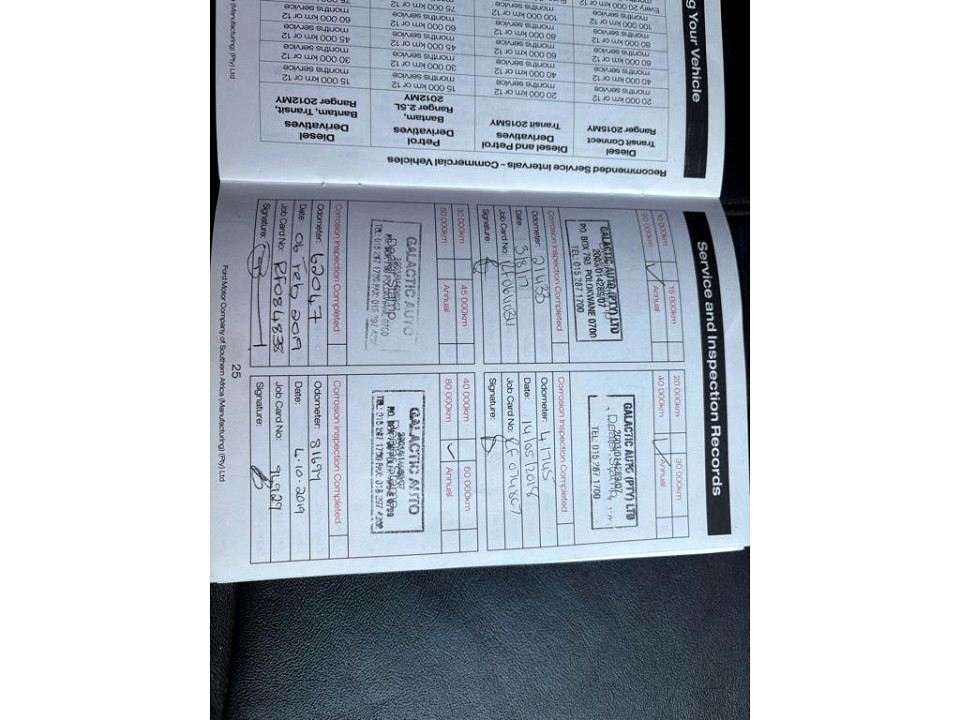 Service and Inspection Records
10 000km
15 000km
20 000km
Annual
GALACTIC AUTO (PTY) LTD
2003/014289/07
P.O. BOX 795 POLOKWANE 0700
TEL: 015 287 1700
Corrosion Inspection Completed
Odometer: 21430
Date: 3/8/17
Job Card No:
Signature:
20 000km
30 000km
40 000km
Annual
GALACTIC AUTO (PTY) LTD
2003/014289/07
Dealer Stamp
TEL: 015 287 1700
Corrosion Inspection Completed
Odometer: 41745
Date: 14/05/2018
Job Card No:
Signature:
30 000km
45 000km
60 000km
Annual
GALACTIC AUTO
Dealer Stamp
TEL: 015 287 1700
Corrosion Inspection Completed
Odometer: 62047
Date: 06 Feb 2019
Job Card No: RF084838
Signature:
40 000km
60 000km
80 000km
Annual
GALACTIC AUTO
Dealer Stamp
TEL: 015 287 1700
Corrosion Inspection Completed
Odometer: 81699
Date: 4.10.2019
Job Card No: 91929
Signature:
25
Ford Motor Company of Southern Africa (Manufacturing) (Pty) Ltd
g Your Vehicle
Recommended Service Intervals – Commercial Vehicles
Diesel
Transit Connect
Ranger 2015MY
Diesel and Petrol
Derivatives
Transit 2015MY
Petrol
Derivatives
Bantam,
Ranger 2.5L
2012MY
Diesel
Derivatives
Bantam, Transit,
Ranger 2012MY
20 000 km or 12
months service
20 000 km or 12
months service
15 000 km or 12
months service
15 000 km or 12
months service
40 000 km or 12
months service
40 000 km or 12
months service
30 000 km or 12
months service
30 000 km or 12
months service
60 000 km or 12
months service
60 000 km or 12
months service
45 000 km or 12
months service
45 000 km or 12
months service
80 000 km or 12
months service
80 000 km or 12
months service
60 000 km or 12
months service
60 000 km or 12
months service
100 000 km or 12
months service
100 000 km or 12
months service
75 000 km or 12
months service
75 000 km or 12
Every 20 000 km
(Manufacturing) (Pty) Ltd